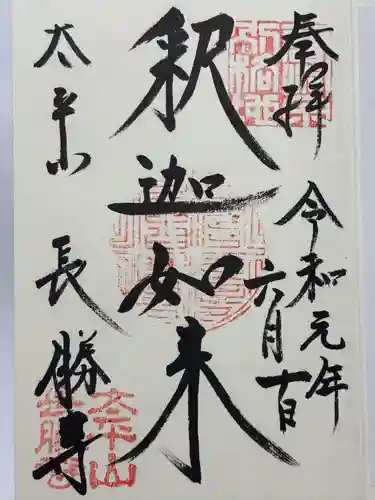 奉拝 令和元年
六月十日
釈迦如来
太平山 長勝寺